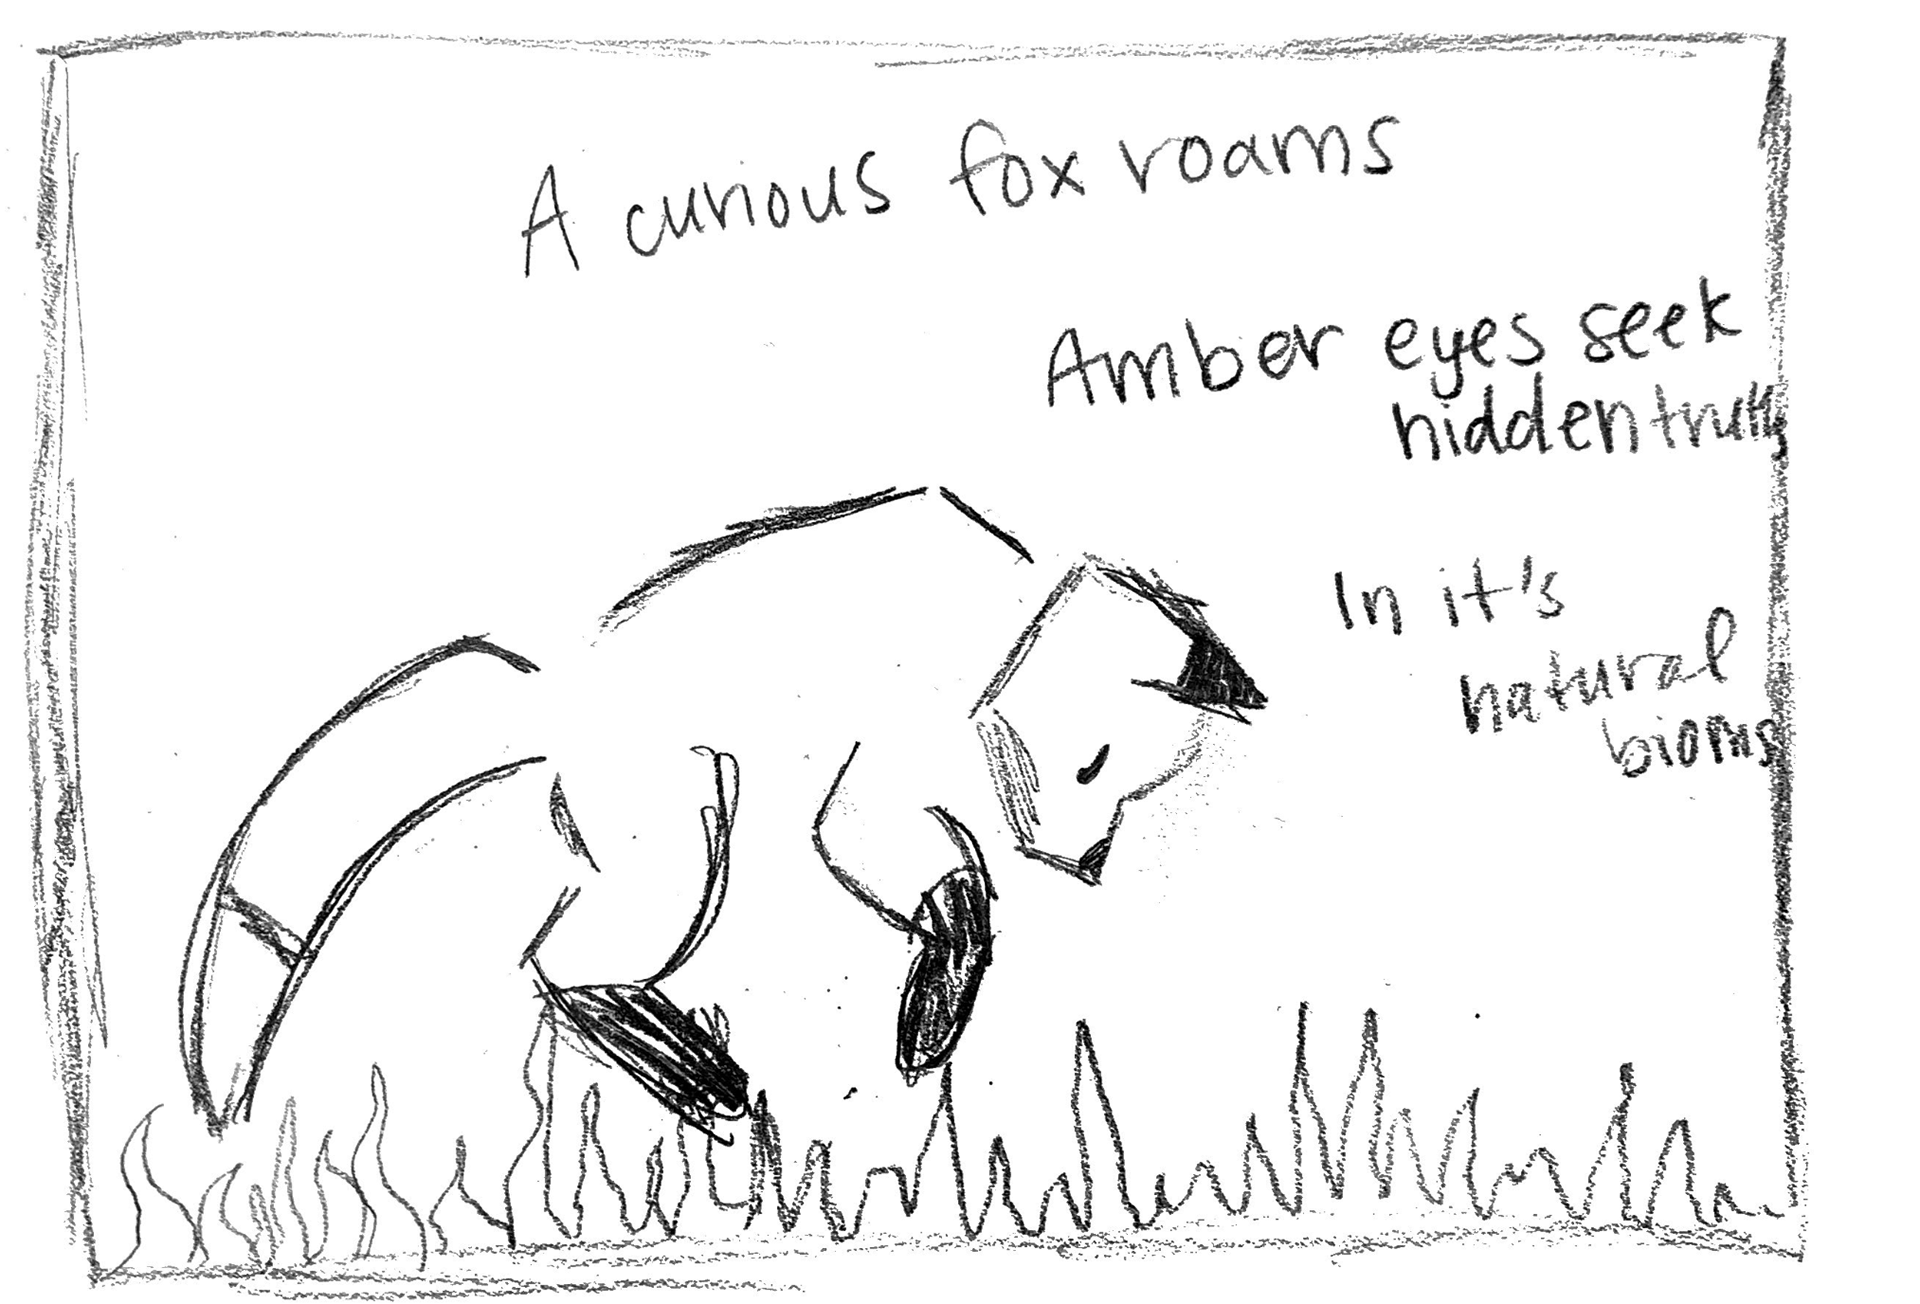 A curious fox roams
Amber eyes seek
hidden truth
In it's
natural
bioms